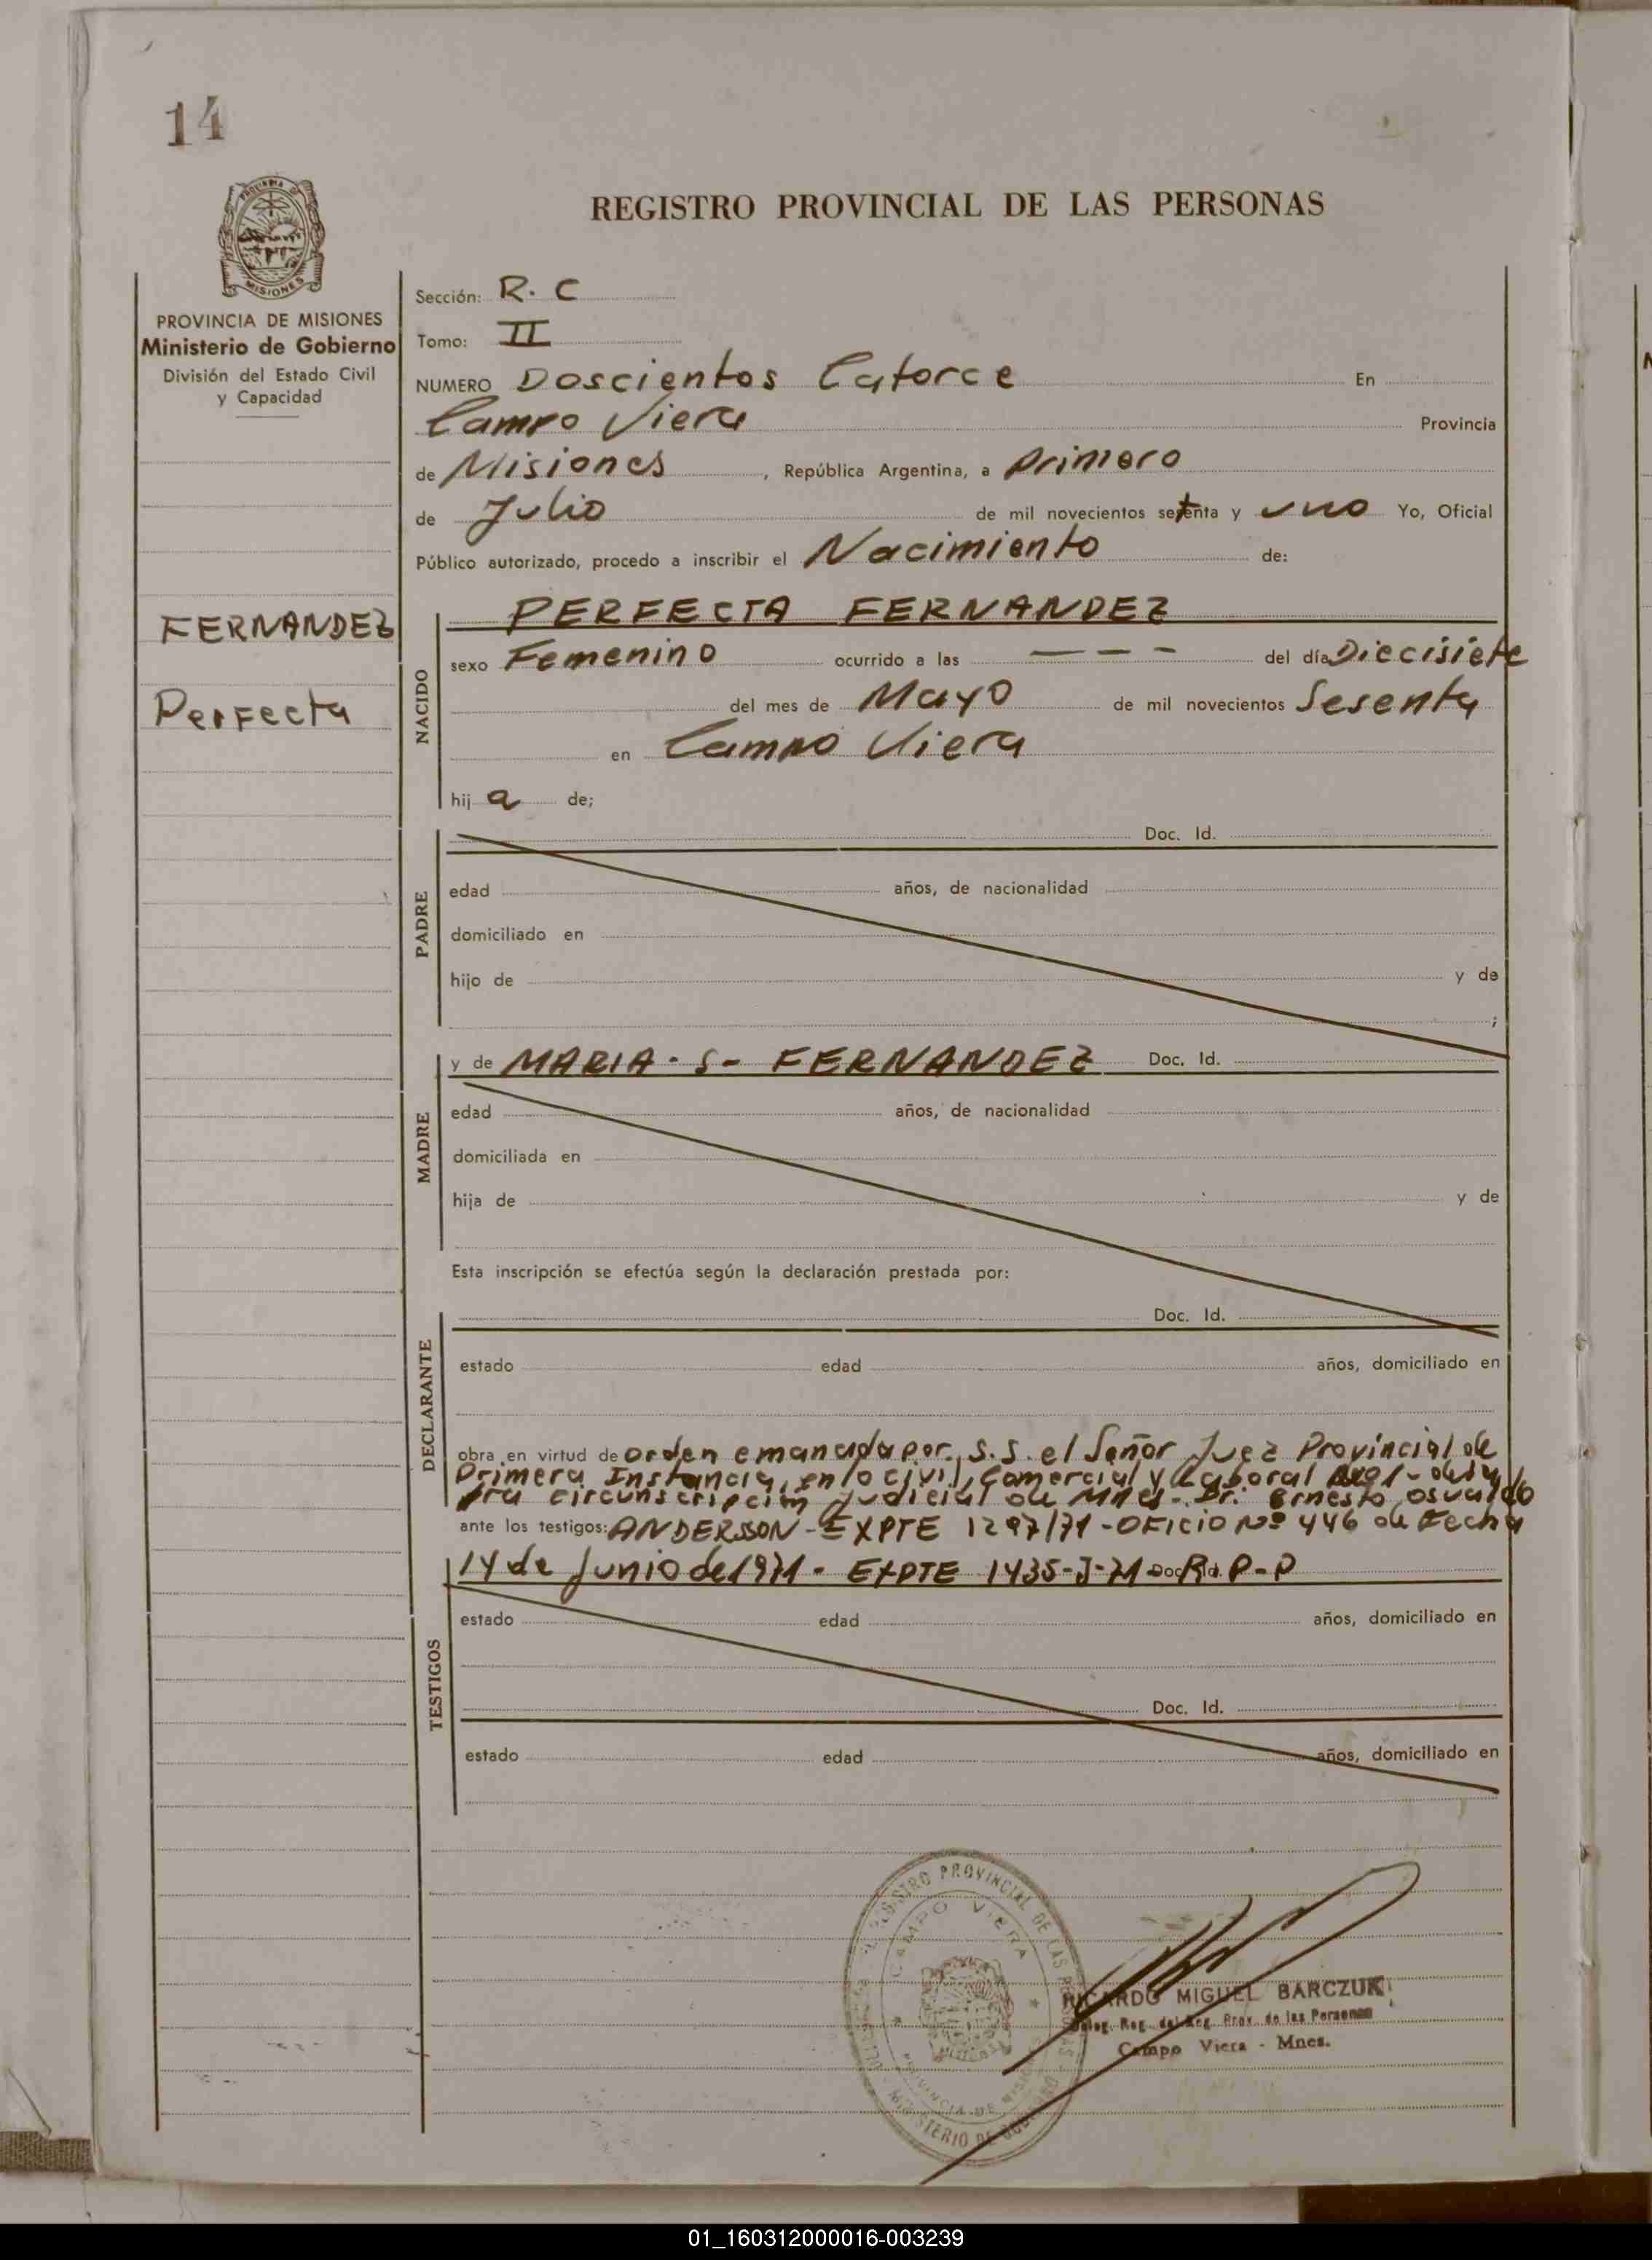 14
REGISTRO PROVINCIAL DE LAS PERSONAS
MISIONES
PROVINCIA DE MISIONES
Ministerio de Gobierno
División del Estado Civil
y Capacidad
Sección: R. C
Tomo: II
NUMERO Doscientos Catorce En
Campo Viera Provincia
de Misiones, República Argentina, a primero
de Julio de mil novecientos setenta y uno Yo, Oficial
Público autorizado, procedo a inscribir el Nacimiento de:
FERNANDEZ
Perfecta
NACIDO
PERFECTA FERNANDEZ
sexo Femenino ocurrido a las — — — del día Diecisiete
del mes de Mayo de mil novecientos Sesenta
en Campo Viera
hij a de;
PADRE
Doc. Id.
edad años, de nacionalidad
domiciliado en
hijo de y de
;
MADRE
y de MARIA - S - FERNANDEZ Doc. Id.
edad años, de nacionalidad
domiciliada en
hija de y de
Esta inscripción se efectúa según la declaración prestada por:
DECLARANTE
Doc. Id.
estado edad años, domiciliado en
obra en virtud de orden emanada por S.S. el Señor Juez Provincial de
Primera Instancia, en lo civil, Comercial y Laboral
circunscripción Judicial de Mnes - Dr. Ernesto Osvaldo
ante los testigos: ANDERSSON - EXPTE 1297/71 - OFICIO Nº 446 de Fecha
14 de Junio de 1971 - EXPTE 1435-J-71 Doc. Id. R-P-P
TESTIGOS
estado edad años, domiciliado en
Doc. Id.
estado edad años, domiciliado en
REGISTRO PROVINCIAL DE LAS
CAMPO VIERA
PROVINCIA DE MISIONES
MINISTERIO DE GOBIERNO
RICARDO MIGUEL BARCZUK
Deleg. Reg. del Reg. Prov. de las Personas
Campo Viera - Mnes.
01_160312000016-003239